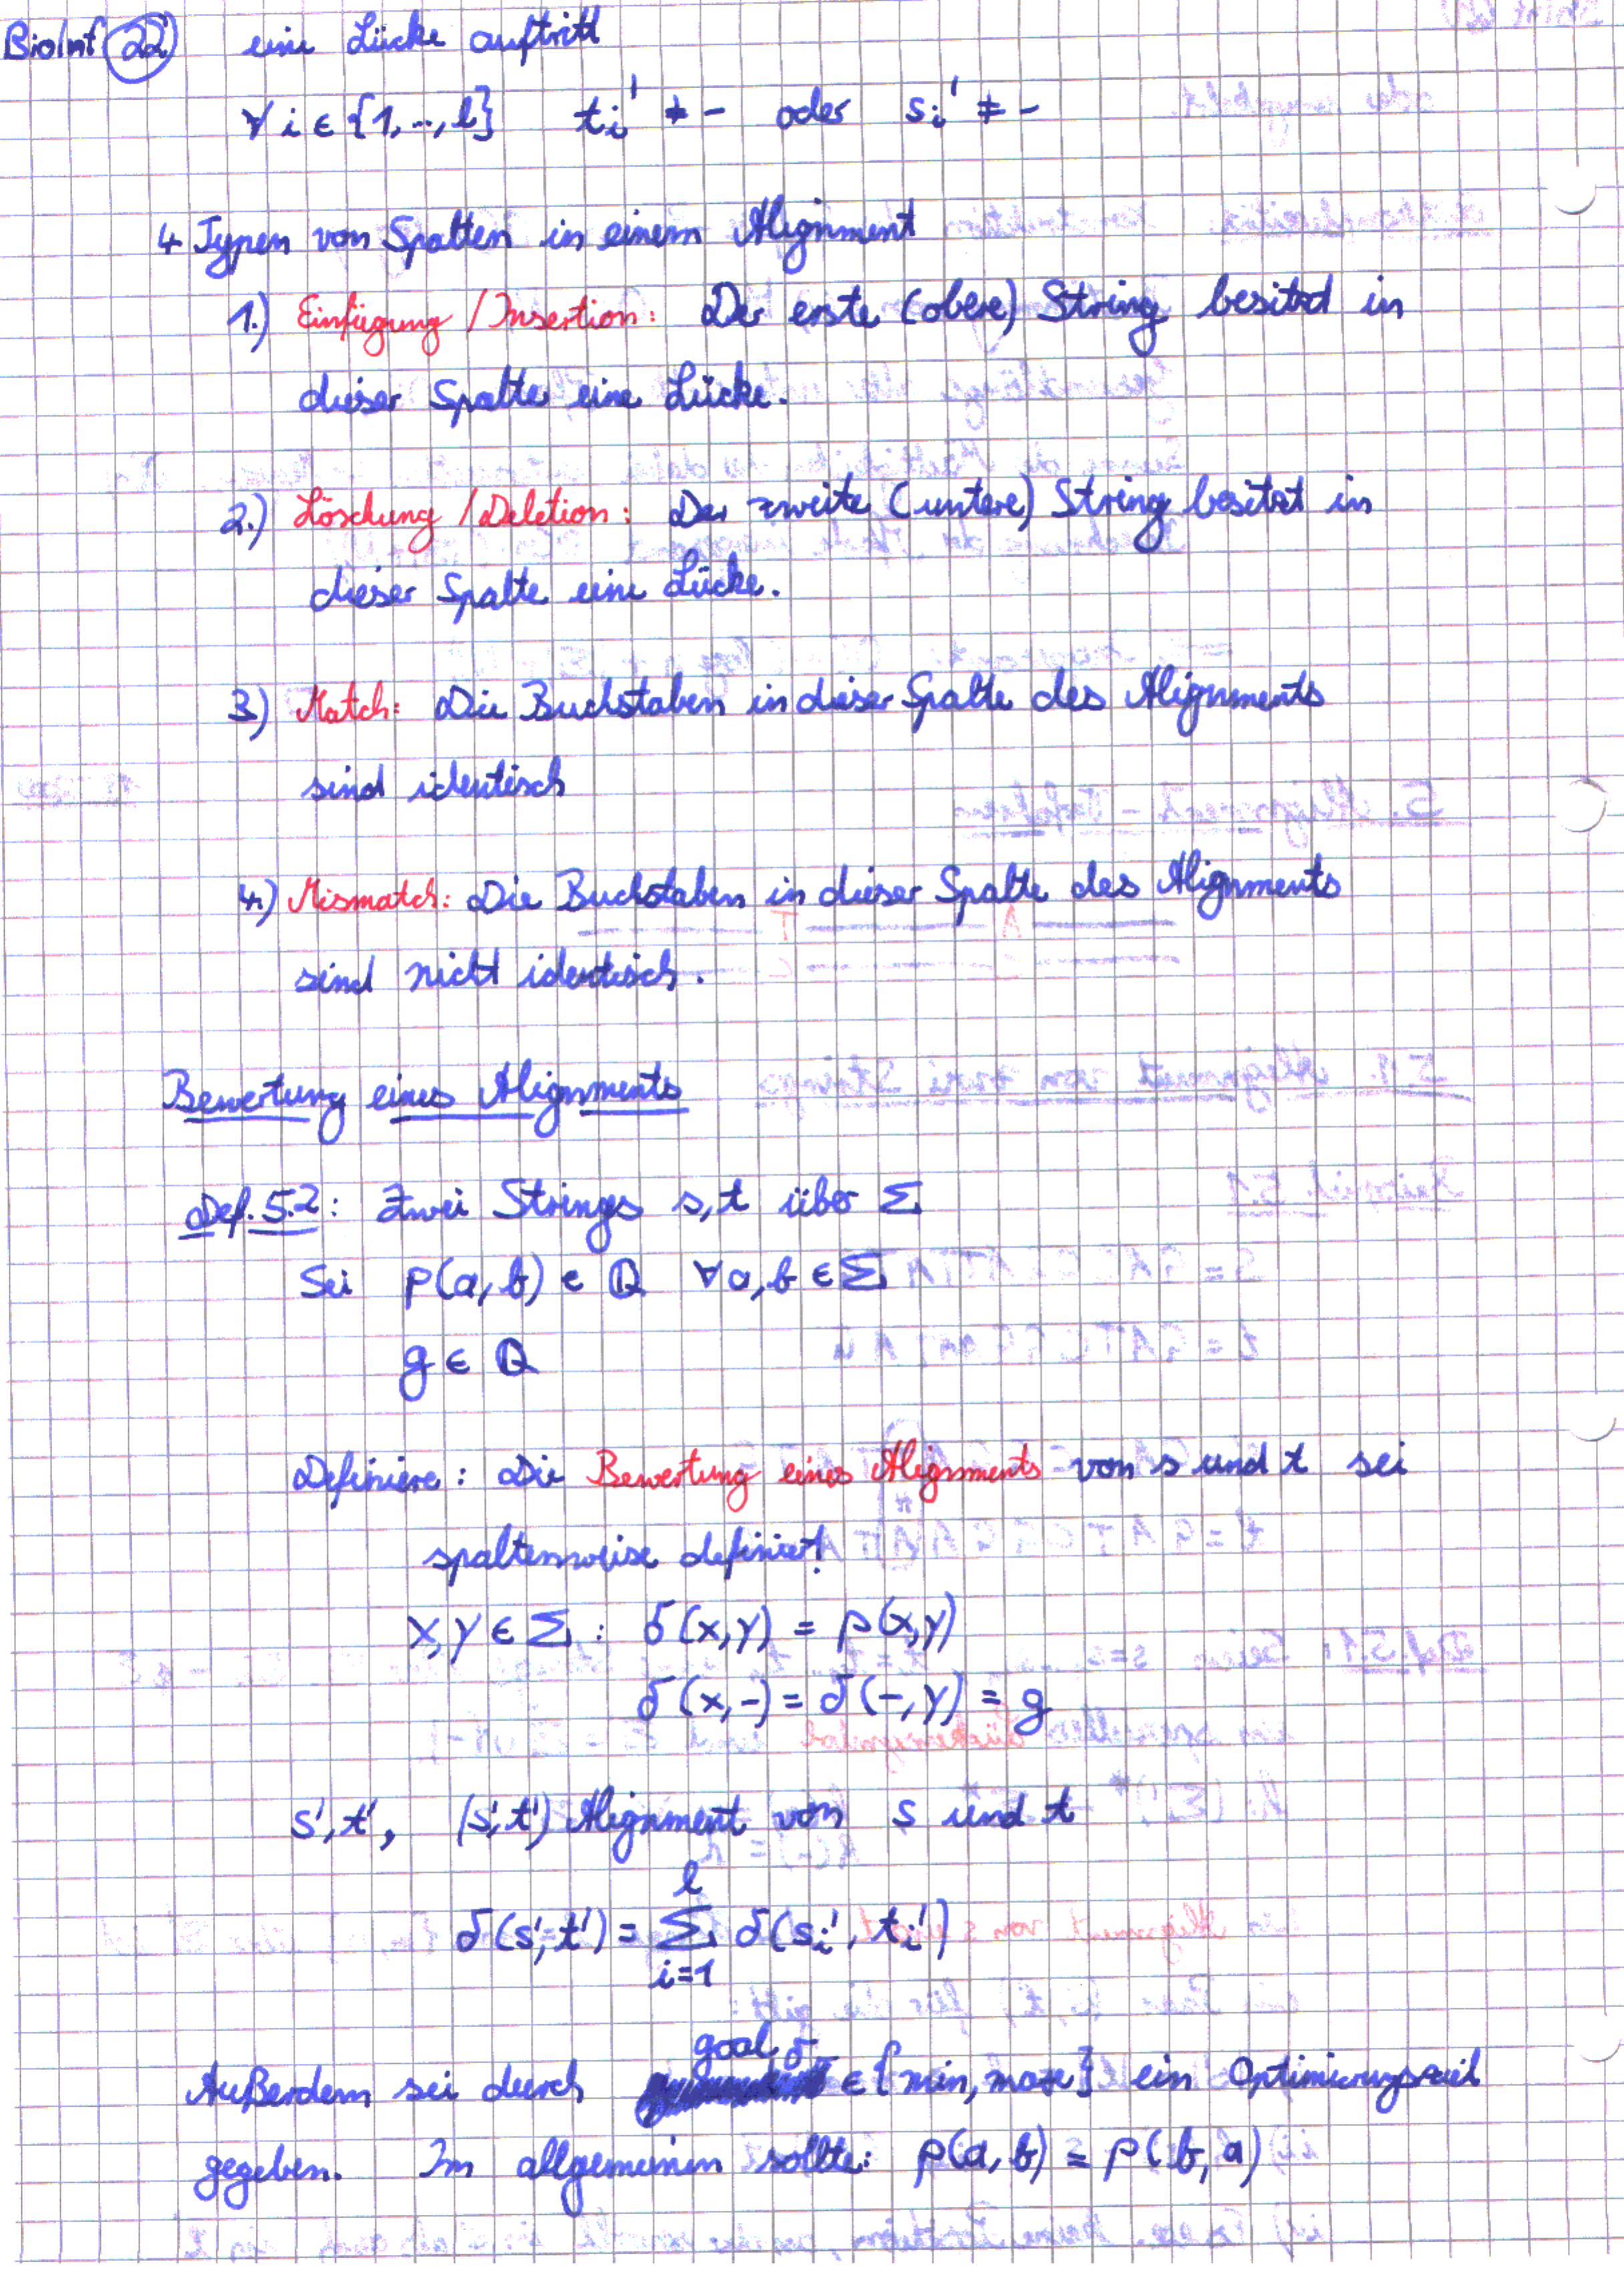 BioInf 22 eine Lücke auftritt
∀ i ∈ {1,..,l} ti' ≠ - oder si' ≠ -
4 Typen von Spalten in einem Alignment
1.) Einfügung / Insertion: Der erste (obere) String besitzt in
dieser Spalte eine Lücke.
2.) Löschung / Deletion: Der zweite (untere) String besitzt in
dieser Spalte eine Lücke.
3) Match: Die Buchstaben in dieser Spalte des Alignments
sind identisch
4.) Mismatch: Die Buchstaben in dieser Spalte des Alignments
sind nicht identisch.
Bewertung eines Alignments
Def. 5.2: Zwei Strings s,t über Σ
Sei p(a,b) ∈ ℚ ∀ a,b ∈ Σ
g ∈ ℚ
Definiere: Die Bewertung eines Alignments von s und t sei
spaltenweise definiert!
x,y ∈ Σ: δ(x,y) = p(x,y)
δ(x,-) = δ(-,y) = g
s',t', (s',t') Alignment von s und t
l
δ(s',t') = Σ δ(si', ti')
i=1
goal δ
Außerdem sei durch ∈ {min, max} ein Optimierungsziel
gegeben. Im allgemeinen sollte: p(a,b) = p(b,a)